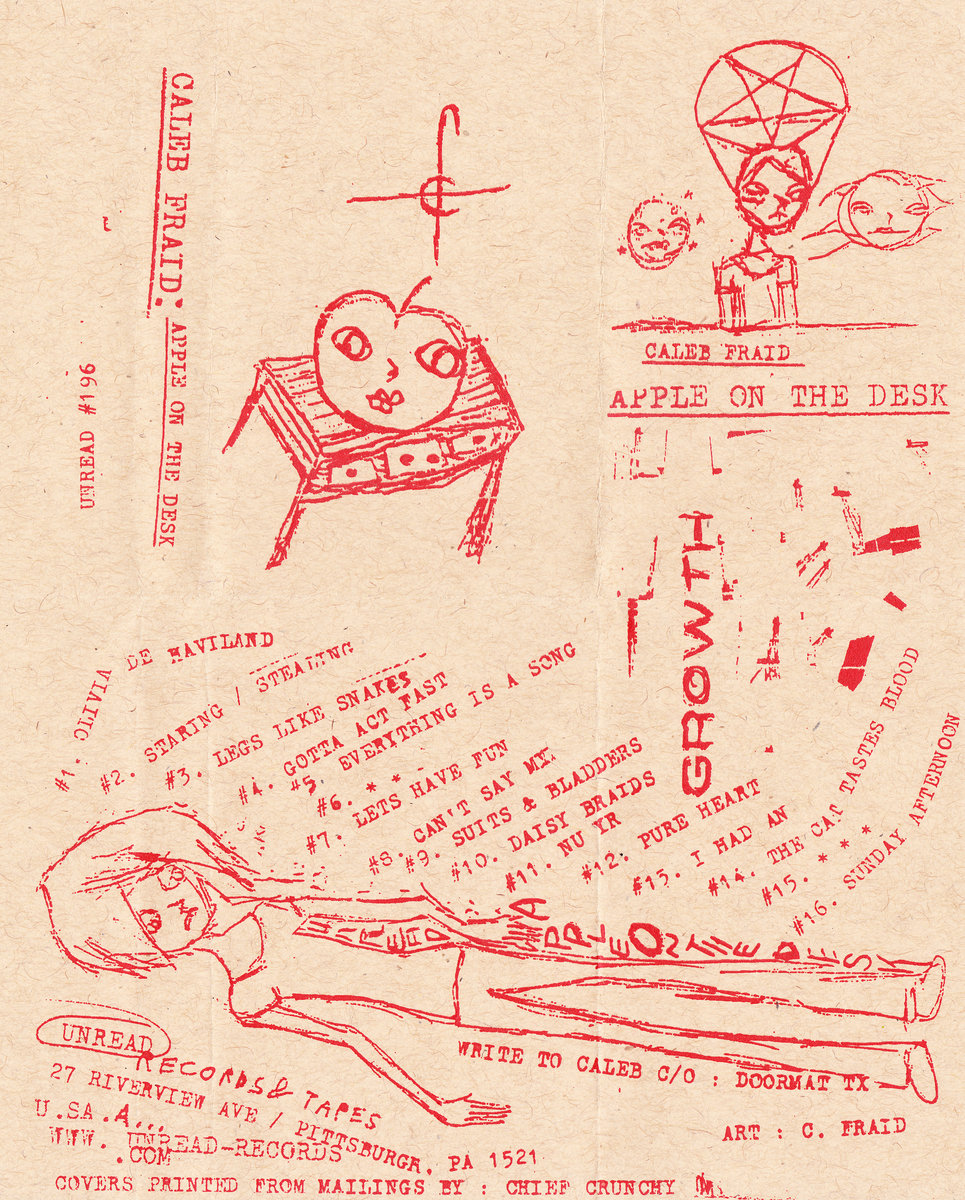 CALEB FRAID: APPLE ON THE DESK
UNREAD #196
CALEB FRAID
APPLE ON THE DESK
GROWTH
#1. OLIVIA DE HAVILAND
#2. STARING / STEALING
#3. LEGS LIKE SNAKES
#4. GOTTA ACT FAST
#5. EVERYTHING IS A SONG
#6. * *
#7. LETS HAVE FUN
#8. CAN'T SAY MY
#9. SUITS & BLADDERS
#10. DAISY BRAIDS
#11. NU YR
#12. PURE HEART
#13. I HAD AN
#14. THE CAT TASTES BLOOD
#15. * * *
#16. SUNDAY AFTERNOON
UNREAD
APPLE ON THE DESK
UNREAD
RECORDS & TAPES
27 RIVERVIEW AVE / PITTSBURGH, PA 1521
U.SA.A...
WWW. UNREAD-RECORDS
.COM
WRITE TO CALEB C/O : DOORMAT TX
ART : C. FRAID
COVERS PRINTED FROM MAILINGS BY : CHIEF CRUNCHY